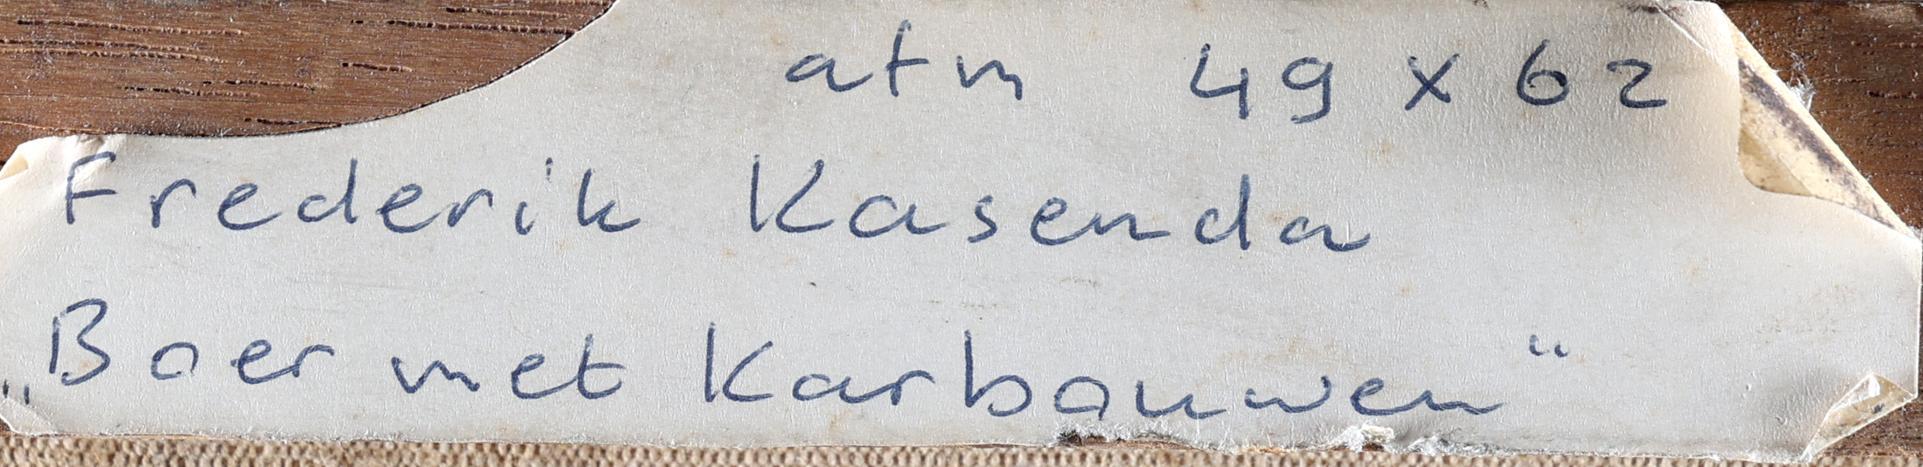 afm 49 x 62
Frederik Kasenda
„Boer met Karbouwen“